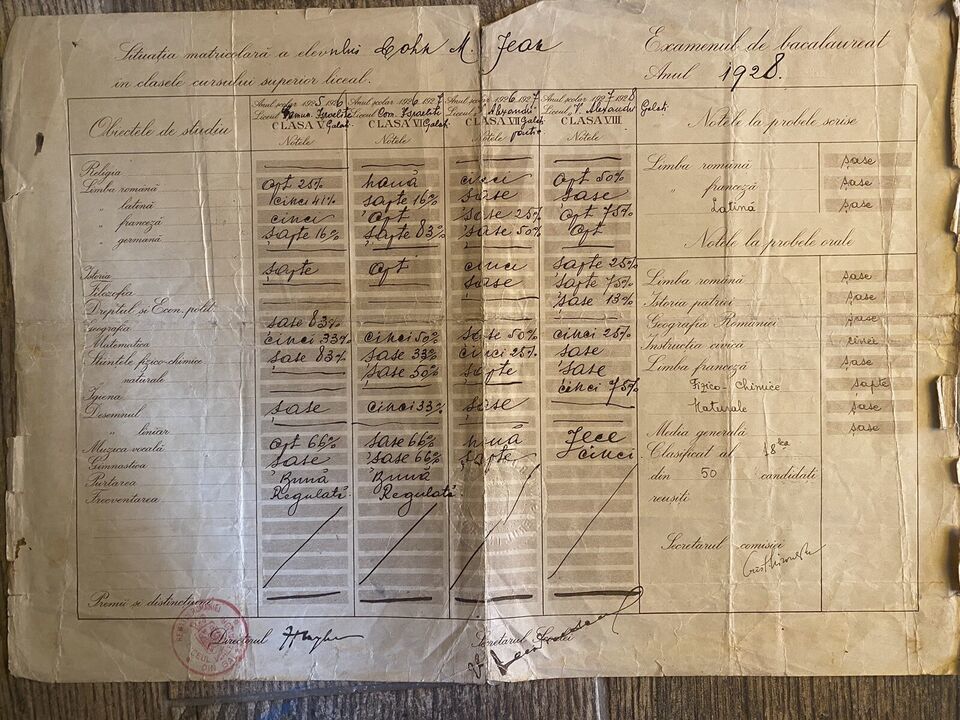 Situația matricolară a elevului Cohn M. Jean
în clasele cursului superior liceal.
Examenul de bacalaureat
Anul 1928.
Obiectele de studiu
Anul școlar 1925 1926
Liceul Comun. Israelite
CLASA V Galați
Notele
Anul școlar 1926 1927
Liceul Com. Israelite
CLASA VI Galați
Notele
Anul școlar 1926 1927
Liceul Alexandri
CLASA VII Galați
Notele
Anul școlar 1927 1928
Liceul „V. Alexandri Galați
CLASA VIII
Notele
Notele la probele scrise
Religia
Limba română opt 25% nouă cinci opt 50%
„ latină cinci 41% șapte 16% șase șase
„ franceză cinci opt șase 25% opt 75%
„ germană șapte 16% șapte 83% șase 50% opt
Istoria șapte opt cinci șapte 25%
Filozofia șase șapte 75%
Dreptul si Econ. polit. șase 13%
Geografia șase 83%
Matematica cinci 33% cinci 50% șase 50% cinci 25%
Științele fizico-chimice șase 83% șase 33% cinci 25% șase
naturale șase 50% șapte șase
Igiena cinci 75%
Desemnul șase cinci 33% șase
„ liniar
Muzica vocală opt 66% șase 66% nouă zece
Gimnastica șase șase 66% șapte cinci
Purtarea Bună Bună
Frecventarea Regulată Regulată
Premii si distincțiuni
Limba română șase
„ franceză șase
Latină șase
Notele la probele orale
Limba română șase
Istoria patriei șase
Geografia României șase
Instrucția civică cinci
Limba franceză șase
Fizico-Chimice șapte
Naturale șase
Media generală șase
Clasificat al 18lea
din 50 candidati
reusiți
Secretarul comisiei
Directorul
Secretarul Școalei